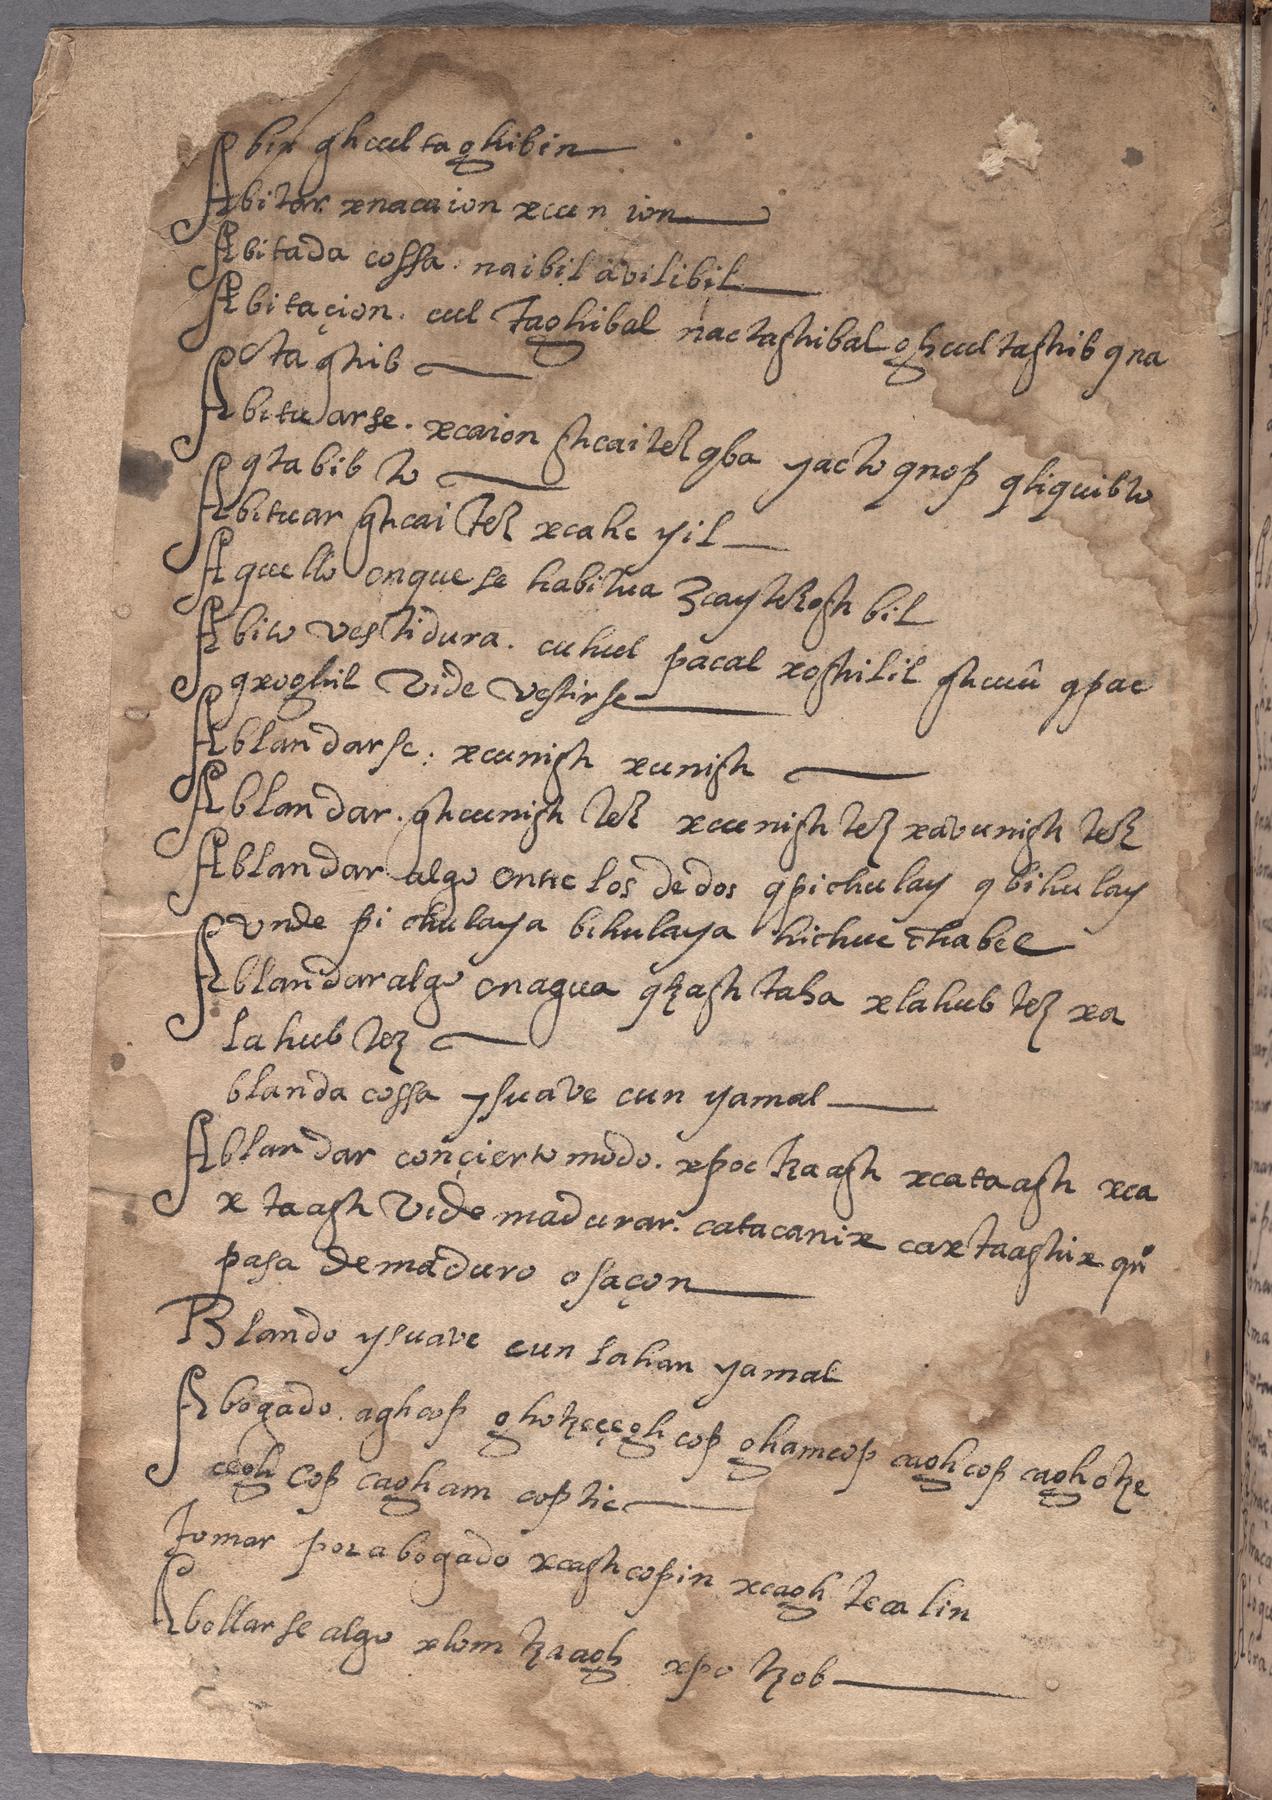 Abix ghcultaghibin
Abitar. xnacaion xcun ion
Abitada cossa. naibil avilibil
Abitaçion. cul taghibal nactaghibal ghcultaghib qna
octaghib
Abituarse. xcaion ghcaitez qba yacto qnop qliquibto
qtabib to
Abituar ghcai tez xcahc yil
Aquello enque se habitua 3caytezogh bil
Abito vestidura. cuhul pacal xoghilil ghcuû qpac
qxoghil vide vestirse
Ablandarse: xcunigh xunigh
Ablandar. ghcunigh tez xcunigh tez xavunigh tez
Ablandar algo entre los dedos qpichulay qbihulay
vnde pichulaya bihulaya hichuc chabec
Ablandar algo enagua qkagh taha xlahub tez xa
lahub tez
blanda cossa ysuave cun yamal
Ablandar conçierto modo. xpoc tzaagh xcataagh xca
x taagh vide madurar. catacanix caxtaaghix qn
pasa demaduro o saçon
Blando ysuave cun lahan yamal
Abogado. aghcop ghotzeçegh cop ghamcop xaghcop xaghotze
cegh cop cagham cop tic
tomar por abogado xcaghcopin xcagh tcalin
Abollarse algo xlom tzaagh xpo tzob